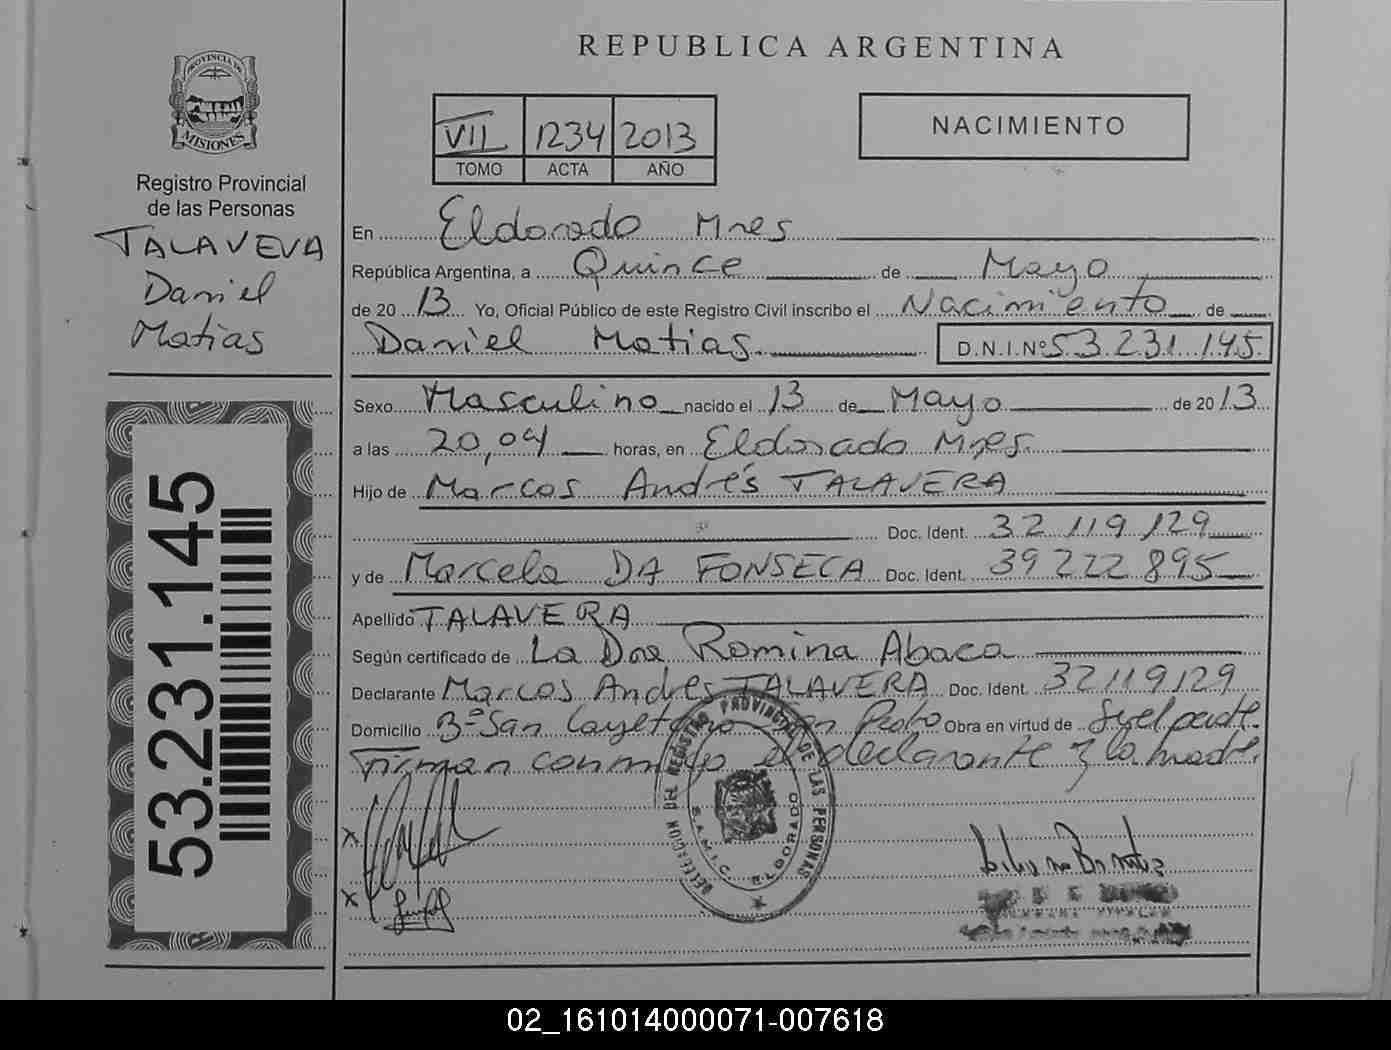 REPUBLICA ARGENTINA
PROVINCIA DE
MISIONES
Registro Provincial
de las Personas
TALAVEVA
Daniel
Matias
53.231.145
VII 1234 2013
TOMO ACTA AÑO
NACIMIENTO
En Eldorado Mnes
República Argentina, a Quince de Mayo
de 20 13 Yo, Oficial Público de este Registro Civil inscribo el Nacimiento de
Daniel Matias D.N.I.Nº 53.231.145
Sexo Masculino nacido el 13 de Mayo de 20 13
a las 20,04 horas, en Eldorado Mnes.
Hijo de Marcos Andrés TALAVERA
Doc. Ident. 32 119 129
y de Marcela DA FONSECA Doc. Ident. 39 222 895
Apellido TALAVERA
Según certificado de La Dra Romina Abaca
Declarante Marcos Andres TALAVERA Doc. Ident. 32 119 129
Domicilio Bº San Cayetano Obra en virtud de
Firman conmigo el declarante y la madre.
DELEGACION DEL REGISTRO PROVINCIAL DE LAS PERSONAS
S.A.M.I.C. ELDORADO
02_161014000071-007618